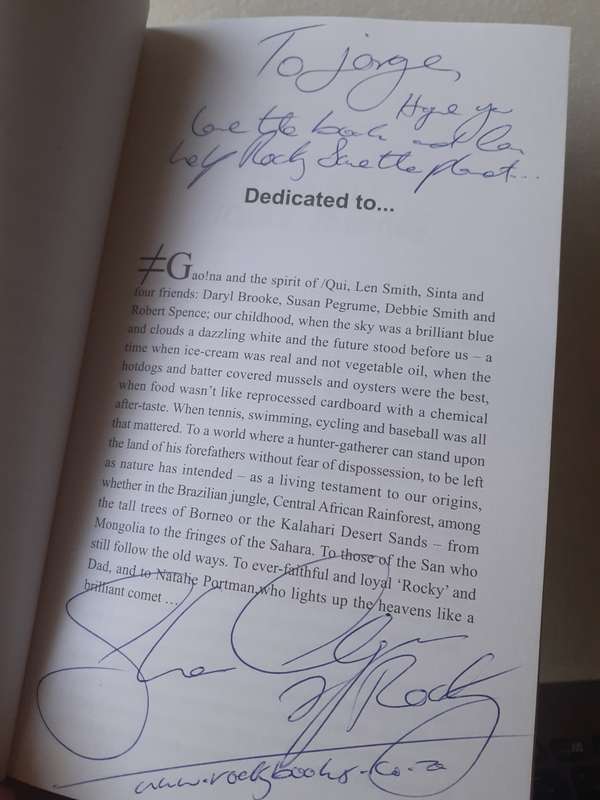 To jorge,
Hope you
love the book and can
help Rocky Save the planet...
Dedicated to...
≠Gao!na and the spirit of /Qui, Len Smith, Sinta and
four friends: Daryl Brooke, Susan Pegrume, Debbie Smith and
Robert Spence; our childhood, when the sky was a brilliant blue
and clouds a dazzling white and the future stood before us – a
time when ice-cream was real and not vegetable oil, when the
hotdogs and batter covered mussels and oysters were the best,
when food wasn't like reprocessed cardboard with a chemical
after-taste. When tennis, swimming, cycling and baseball was all
that mattered. To a world where a hunter-gatherer can stand upon
the land of his forefathers without fear of dispossession, to be left
as nature has intended – as a living testament to our origins,
whether in the Brazilian jungle, Central African Rainforest, among
the tall trees of Borneo or the Kalahari Desert Sands – from
Mongolia to the fringes of the Sahara. To those of the San who
still follow the old ways. To ever-faithful and loyal 'Rocky' and
Dad, and to Natalie Portman,who lights up the heavens like a
brilliant comet ...
Rocky
www.rockybooks.co.za